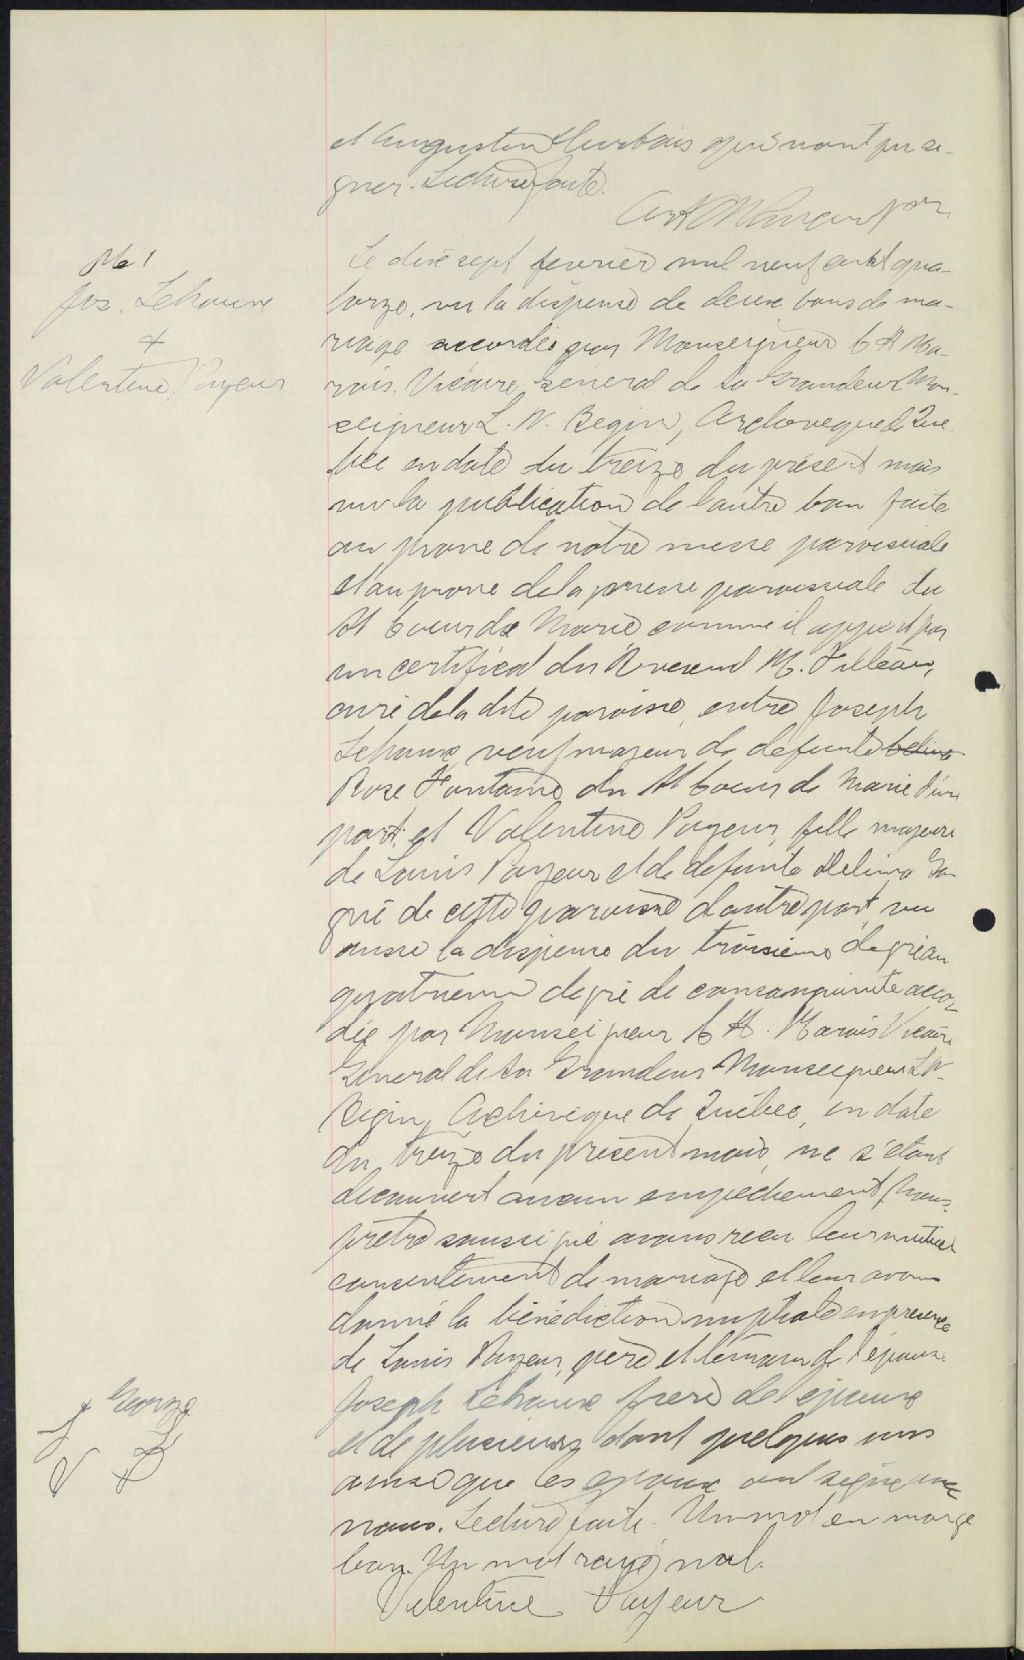 et Augustin Hurtois qui n'ont pu si-
gner. Lecture faite.
Ptre
M 1
Jos. Lehoux
+
Valentine Payeur
Le dix sept fevrier mil neuf cent qua-
torze, vu la dispense de deux bans de ma-
riage accordée par Monseigneur C A Ma-
rois, Vicaire General de Sa Grandeur Mon-
seigneur L. N. Begin, Archeveque de Que-
bec en date du treize du présent mois
vu la publication de l'autre ban faite
au prone de notre messe paroissiale
et au prone de la messe paroissiale du
St Coeur de Marie comme il appert par
un certificat du Reverend M.
curé de la dite paroisse, entre Joseph
Lehoux, veuf majeur de defunte Celina
Rose Fontaine du St Coeur de Marie d'une
part, et Valentine Payeur, fille majeure
de Louis Payeur et de defunte Delima Ga-
gné de cette paroisse d'autre part, vu
aussi la dispense du troisieme degré au
quatrieme degré de consanguinite accor-
dée par Monseigneur C A. Marois Vicaire
General de Sa Grandeur Monseigneur L N
Begin, Acheveque de Québec, en date
du treize du présent mois, ne s'etant
decouvert aucun empechement, Nous,
prêtre soussigné avons recu leur mutuel
consentement de mariage et leur avons
donné la bénédiction nuptiale en presence
de Louis Payeur, père et temoin de l'épouse
Joseph Lehoux frere de l'epoux
et de plusieurs dont quelques uns
ainsi que les epoux ont signe avec
nous. Lecture faite. Un mot en marge
bon. Un mot rayé nul.
Valentine Payeur
+ George
J L
V P